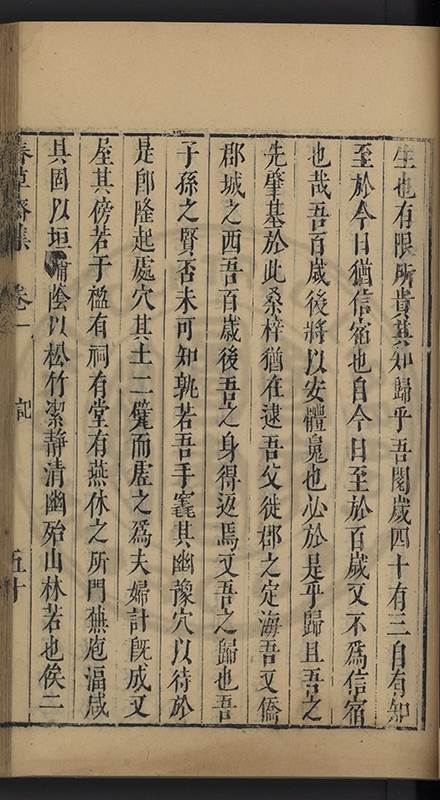 生也有限所貴其知歸乎吾閱歲四十有三自有知
至於今日猶信宿也自今日至於百歲又不為信宿
也哉吾百歲後將以安體䰟也必於是乎歸且吾之
先肇基於此桑梓猶在逮吾父徙郡之定海吾又僑
郡城之西吾百歲後吾之身得返焉又吾之歸也吾
子孫之賢否未可知孰若吾手竁其幽豫穴以待於
是卽隆起處穴其土二甓而虛之為夫婦計旣成又
屋其傍若干楹有祠有堂有燕休之所門廡庖湢咸
具固以垣墉蔭以松竹潔靜清幽殆山林若也俟二
春草齋集 卷一 記 五十